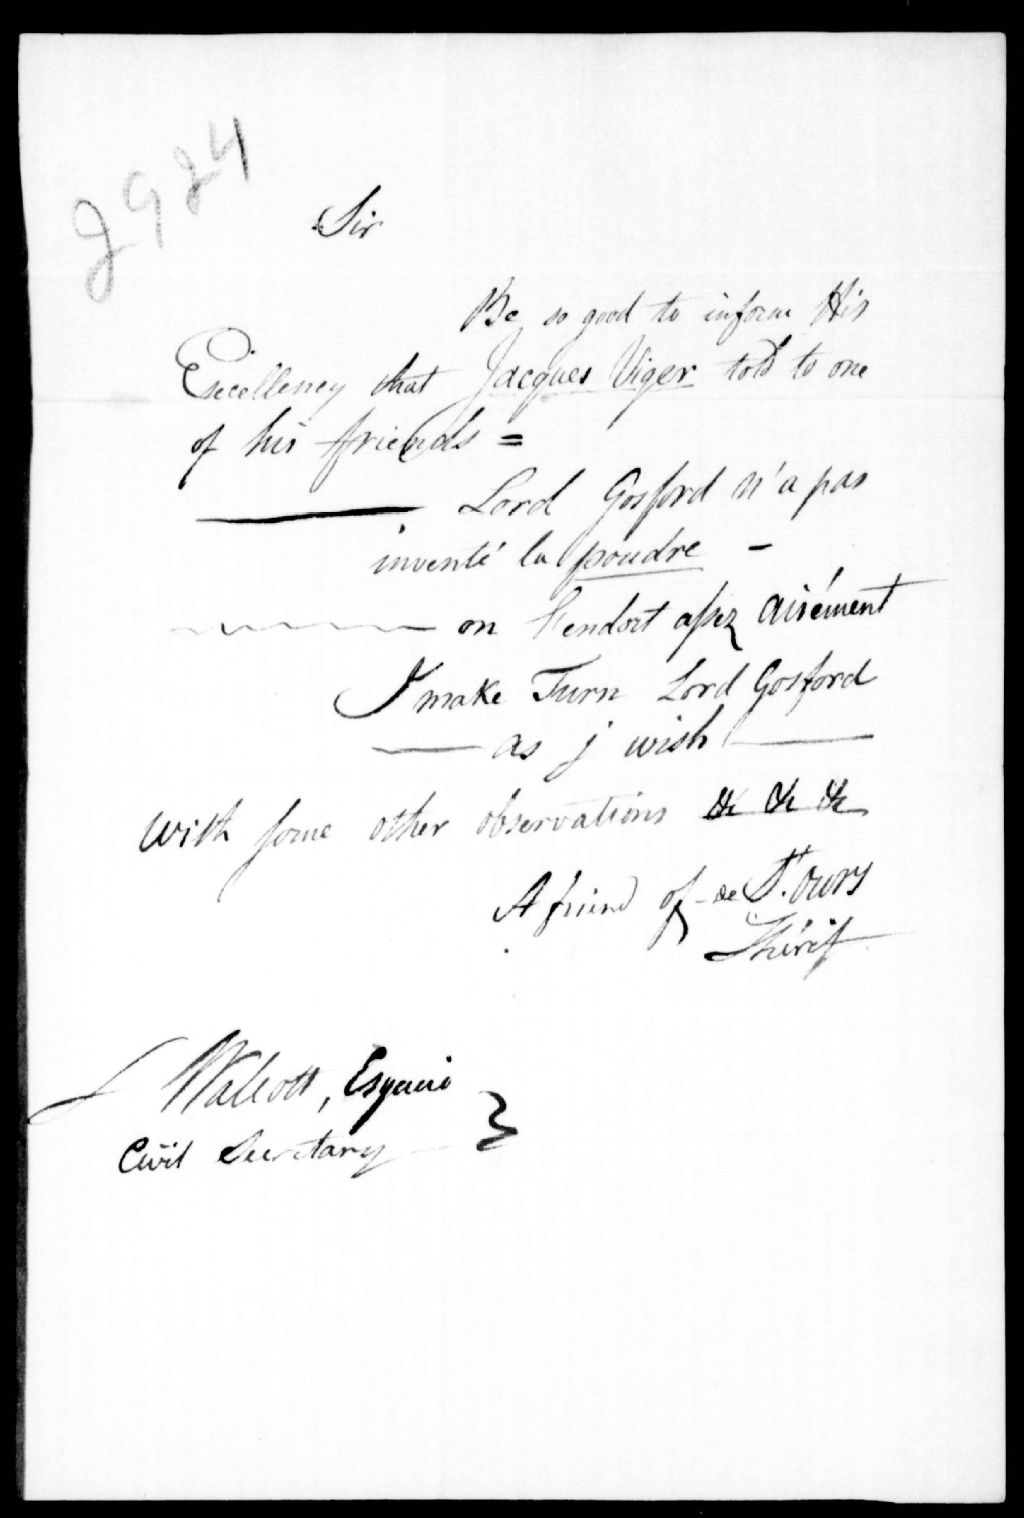 2924
Sir
Be so good to inform His
Excellency that Jacques Viger told to one
of his friends =
Lord Gosford n'a pas
inventé la poudre -
on l'endort assez aisément
I make Turn Lord Gosford
as j wish
With some other observations &c &c &c
A friend of de St. Ours
Shérif
Walcott, Esquire
Civil Secretary